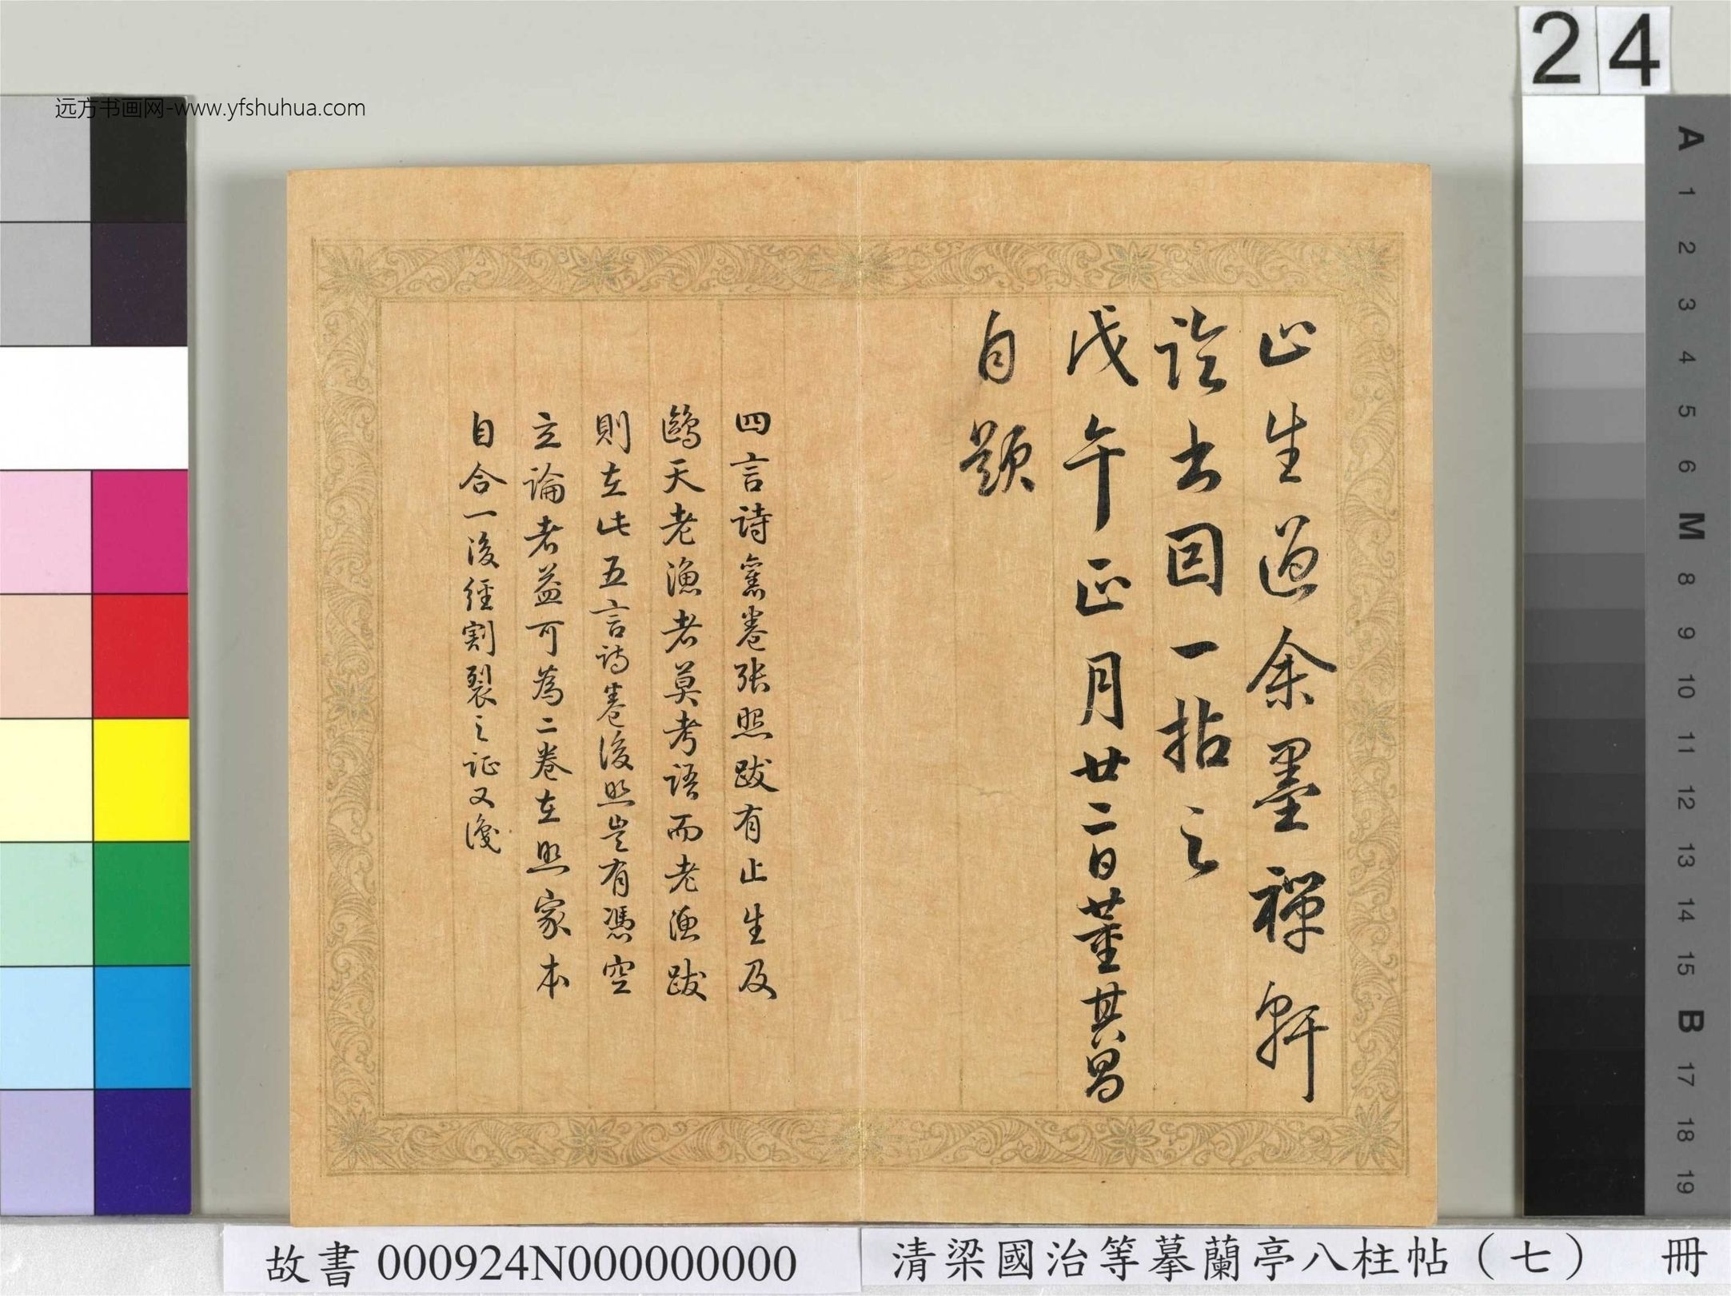 24
远方书画网-www.yfshuhua.com
止生過余墨禪軒
論書因一拈之
戊午正月廿二日董其昌
自題
四言詩舊卷張照跋有止生及
鷗天老漁者莫考語而老漁跋
則在此五言詩卷後照豈有憑空
立論者益可為二卷在照家本
自合一後經割裂之証又識
A
1
2
3
4
5
6
M
8
9
10
11
12
13
14
15
B
17
18
19
故書 000924N000000000
清梁國治等摹蘭亭八柱帖（七） 冊